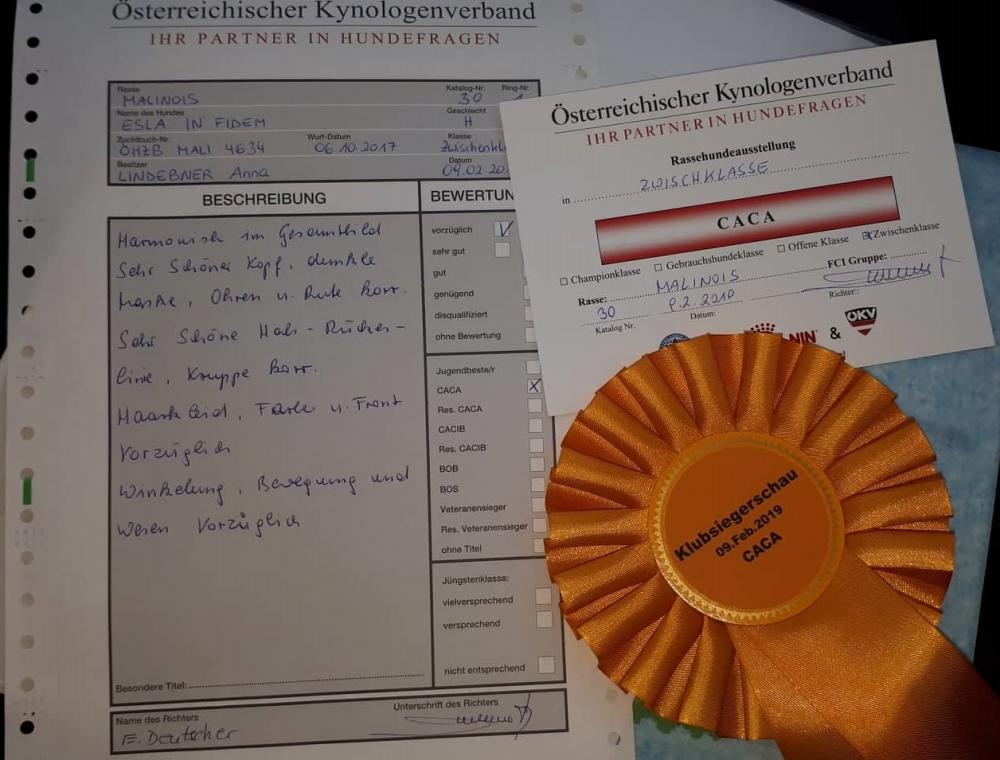 Österreichischer Kynologenverband
IHR PARTNER IN HUNDEFRAGEN
Rasse
MALINOIS
Katalog-Nr.
30
Ring-Nr.
Name des Hundes
ESLA IN FIDEM
Geschlecht
H
Zuchtbuch-Nr.
ÖHZB MALI 4634
Wurf-Datum
06.10.2017
Klasse
Zwischenkl
Besitzer
LINDEBNER Anna
Datum
09.02.20
BESCHREIBUNG
Harmonisch im Gesamtbild
Sehr Schöner Kopf, dunkle
Maske, Ohren u. Rute korr.
Sehr Schöne Hals-Rücken-
linie, Kruppe korr.
Haarkleid, Farbe u. Front
Vorzüglich
Winkelung, Bewegung und
Wesen Vorzüglich
Besondere Titel:
BEWERTUN
vorzüglich V
sehr gut
gut
genügend
disqualifiziert
ohne Bewertung
Jugendbeste/r
CACA X
Res. CACA
CACIB
Res. CACIB
BOB
BOS
Veteranensieger
Res. Veteranensieger
ohne Titel
Jüngstenklasse:
vielversprechend
versprechend
nicht entsprechend
Name des Richters
E. Deutscher
Unterschrift des Richters
Österreichischer Kynologenverband
IHR PARTNER IN HUNDEFRAGEN
Rassehundeausstellung
in ZWISCHKLASSE
CACA
Championklasse Gebrauchshundeklasse Offene Klasse Zwischenklasse
Rasse: MALINOIS FCI Gruppe:
30 9.2.2019
Katalog Nr. Datum: Richter:
& ÖKV
Klubsiegerschau
09.Feb.2019
CACA